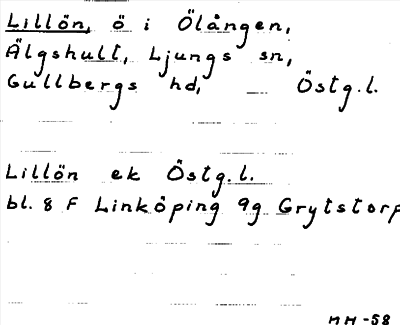 Lillön, ö i Ölången,
Älgshult, Ljungs sn,
Gullbergs hd, Östg.l.
Lillön ek Östg.l.
bl. 8 F Linköping 9g Grytstorp
MM-58